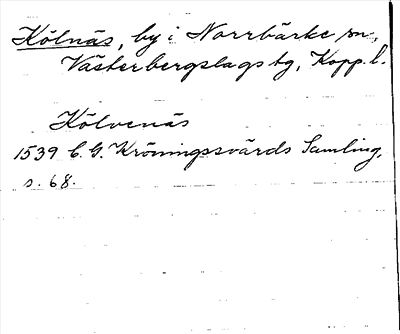 Kölnäs, by i Norrbärke sn,
Västerbergslags tg, Kopp. l.
Kölvenäs
1539 C. G. Kröningssvärds Samling,
s. 68.